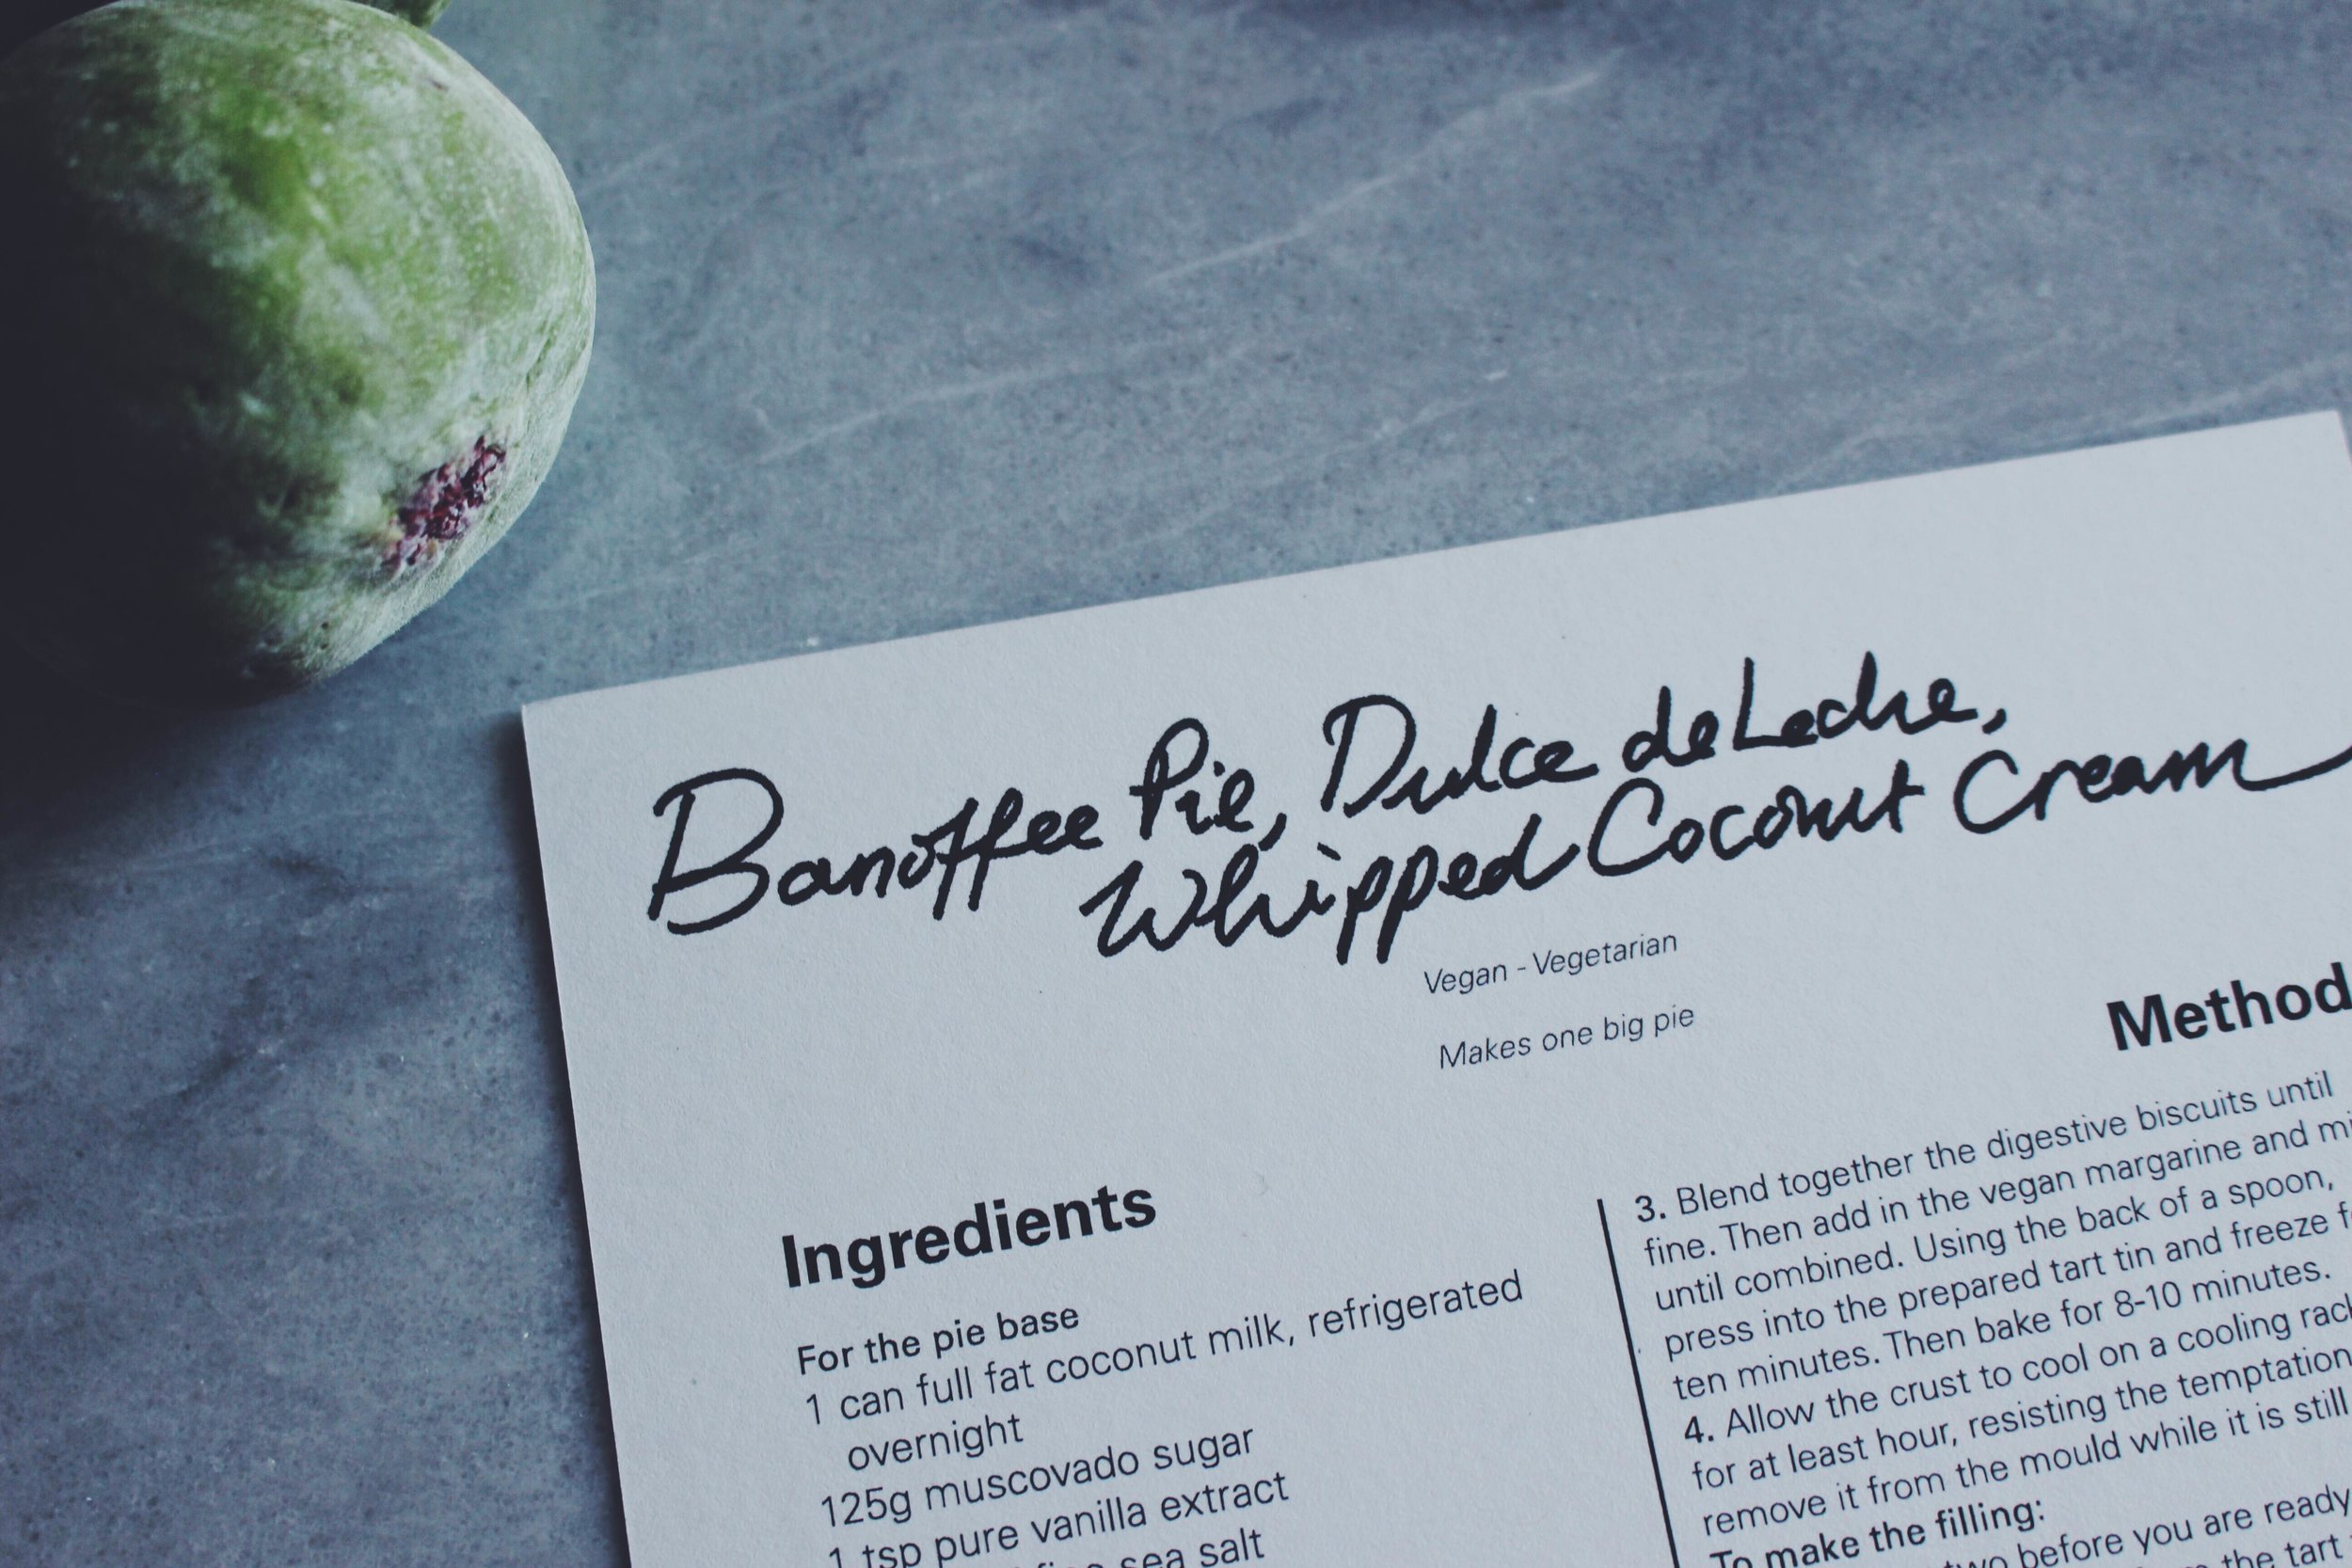 Banoffee Pie, Dulce de Leche,
Whipped Coconut Cream
Vegan - Vegetarian
Makes one big pie
Ingredients
For the pie base
1 can full fat coconut milk, refrigerated
overnight
125g muscovado sugar
1 tsp pure vanilla extract
sea salt
Method
3. Blend together the digestive biscuits until
fine. Then add in the vegan margarine and
until combined. Using the back of a spoon,
press into the prepared tart tin and freeze
ten minutes. Then bake for 8-10 minutes.
4. Allow the crust to cool on a cooling rack
for at least hour, resisting the temptation
remove it from the mould while it is still
To make the filling:
two before you are ready
the tart